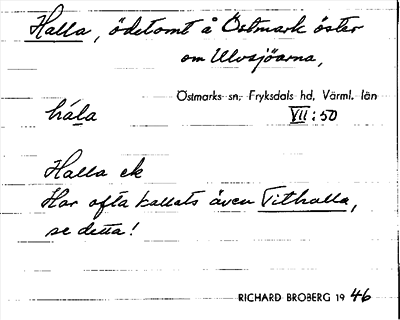 Halla, ödetomt å Östmark öster
om Ulvsjöarna,
Östmarks sn, Fryksdals hd, Värml. län
hála VII:50
Halla ek
Har ofta kallats även Tithalla,
se detta!
RICHARD BROBERG 1946